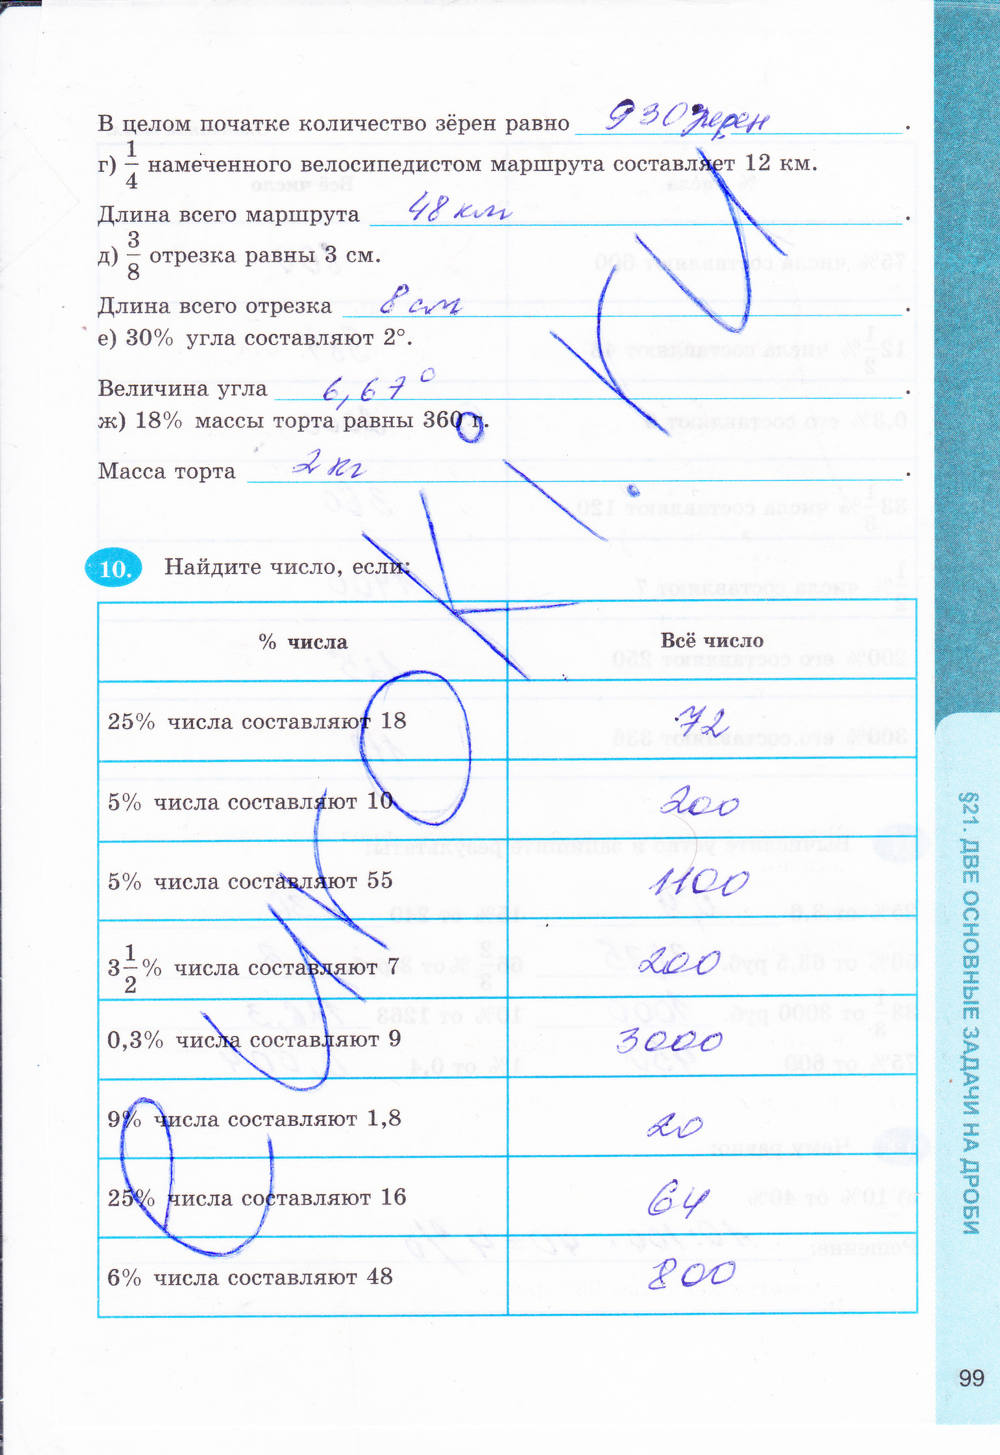 В целом початке количество зёрен равно 930 зерен.
г) 1/4 намеченного велосипедистом маршрута составляет 12 км.
Длина всего маршрута 48 км.
д) 3/8 отрезка равны 3 см.
Длина всего отрезка 8 см.
е) 30% угла составляют 2°.
Величина угла 6,67°.
ж) 18% массы торта равны 360 г.
Масса торта 2 кг.
10. Найдите число, если:
% числа Всё число
25% числа составляют 18 72
5% числа составляют 10 200
5% числа составляют 55 1100
3 1/2% числа составляют 7 200
0,3% числа составляют 9 3000
9% числа составляют 1,8 20
25% числа составляют 16 64
6% числа составляют 48 800
§21. ДВЕ ОСНОВНЫЕ ЗАДАЧИ НА ДРОБИ
99